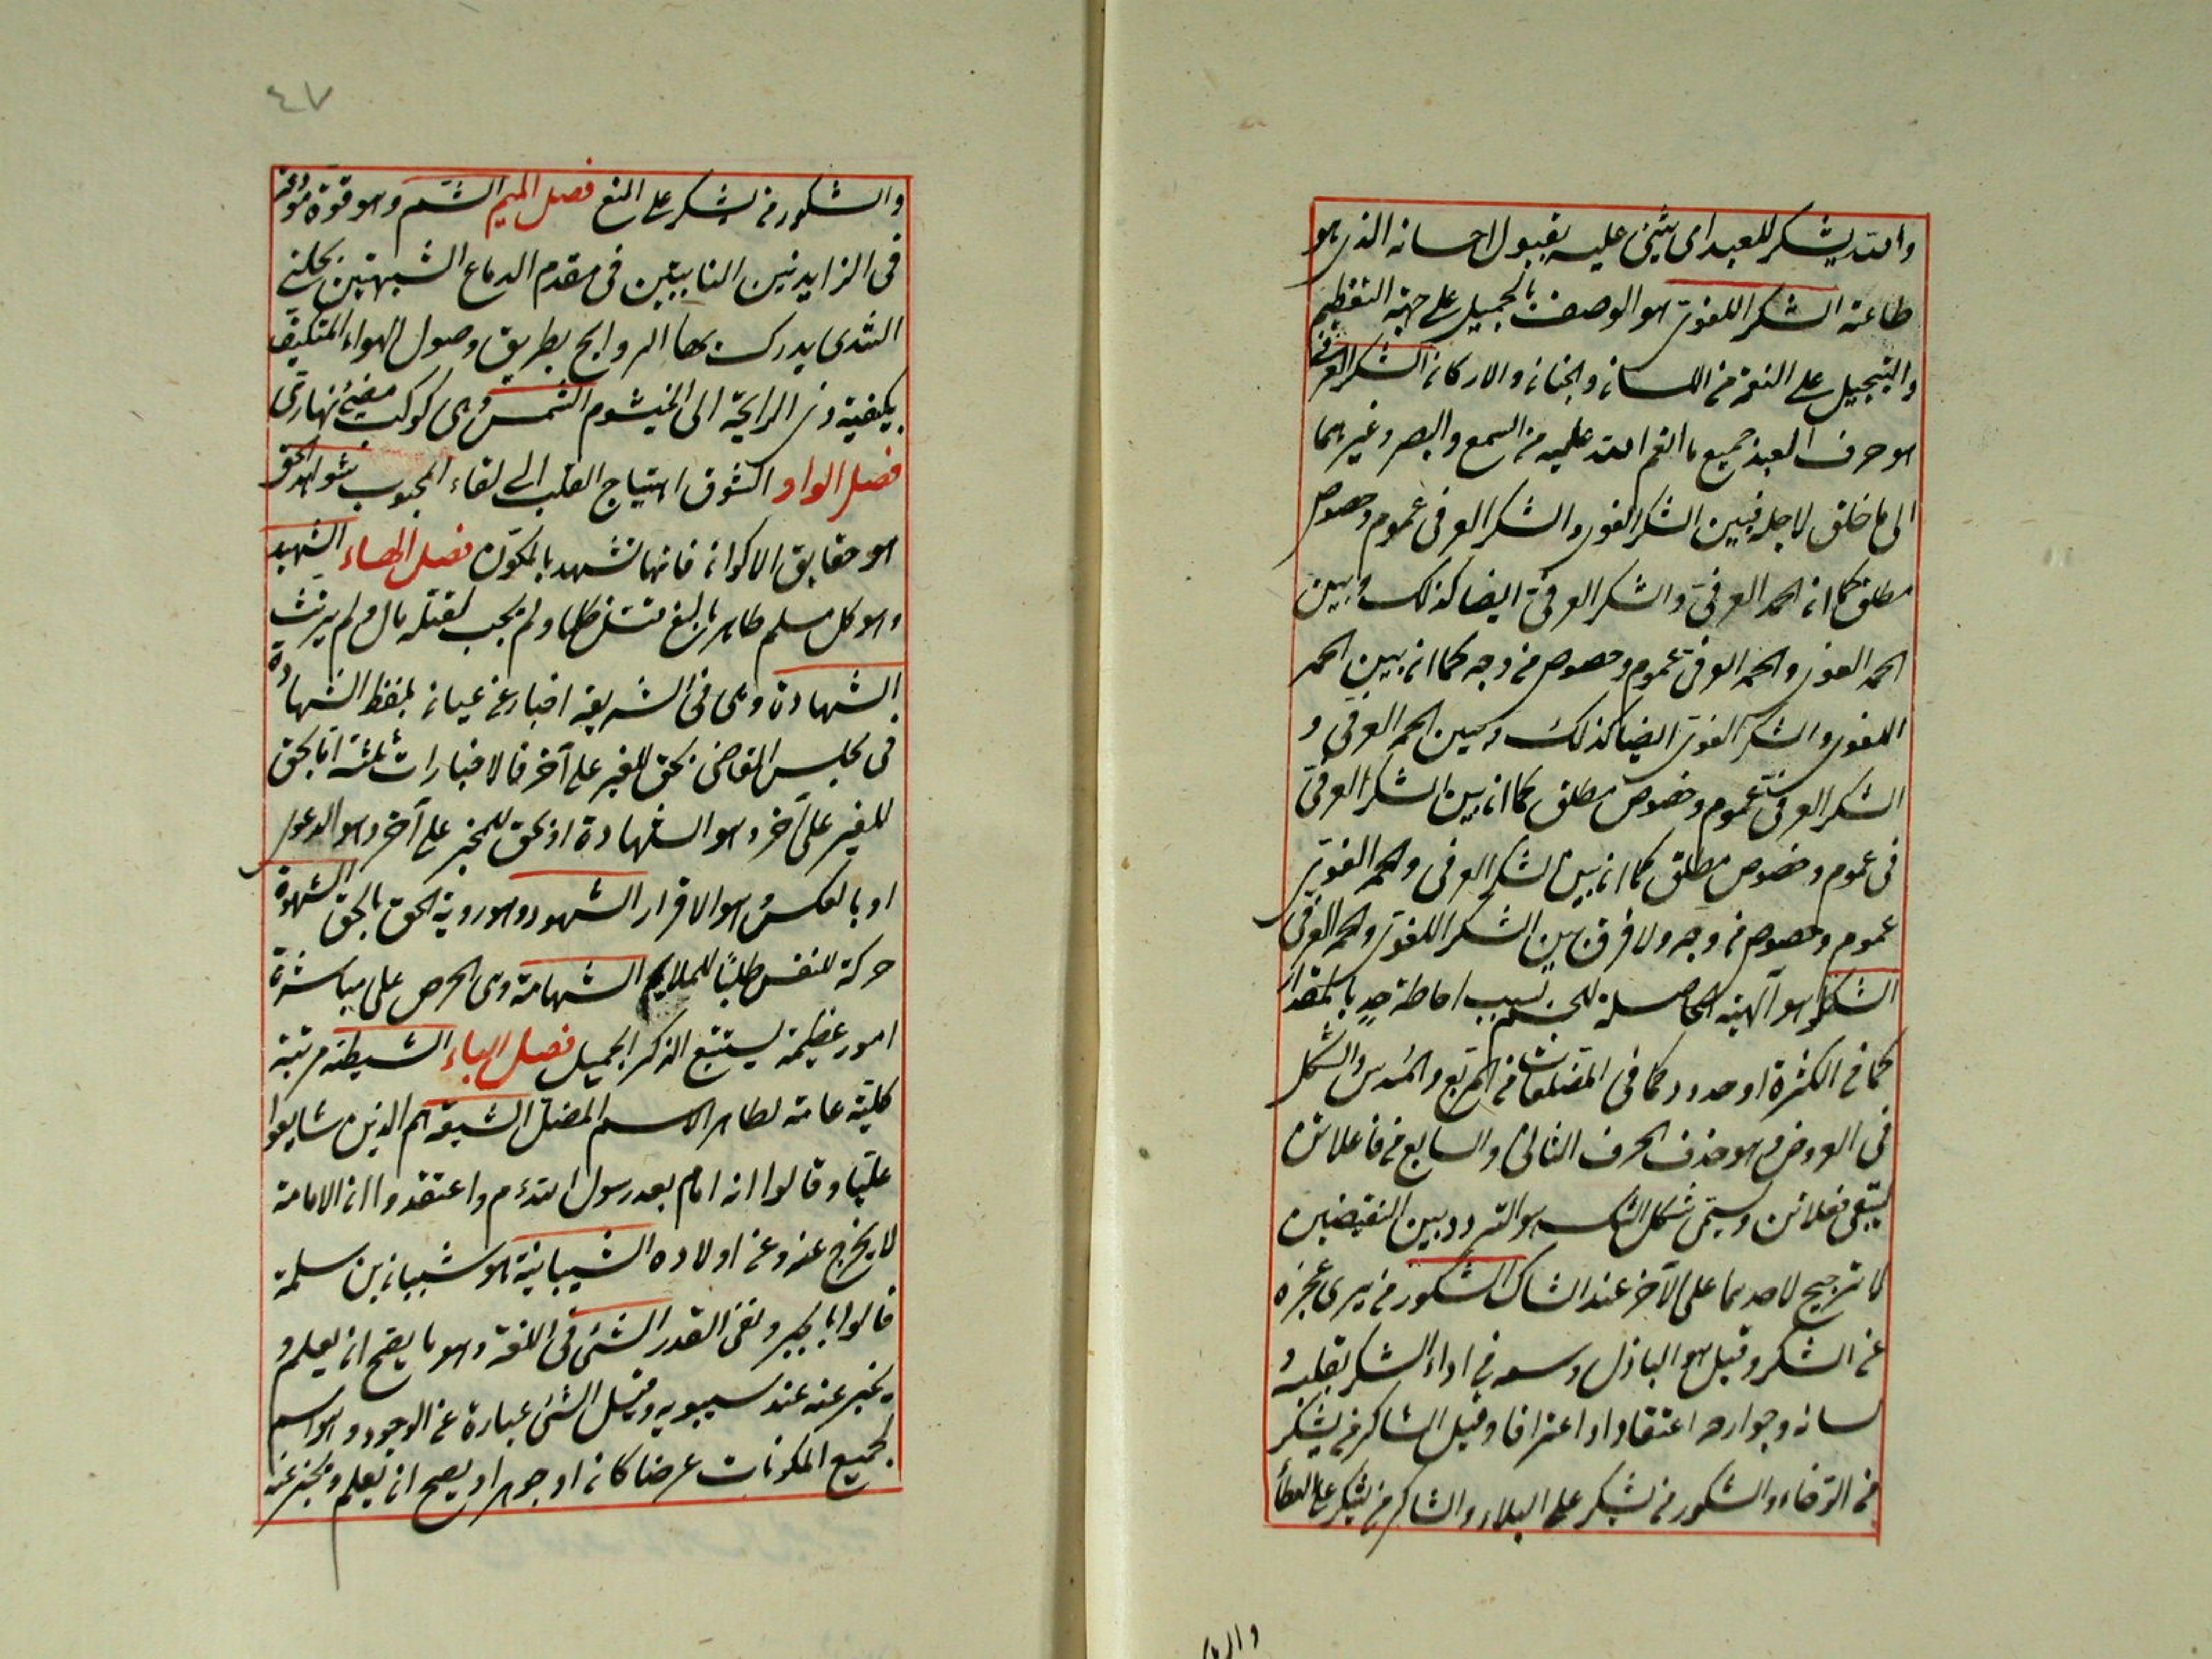 والله يشكر للعبد اى يثنى عليه بقبول احسانه الذى هو
طاعته الشكر اللغوى هو الوصف بالجميل على جهة التعظيم
والتبجيل على النعمة من اللسان والجنان والاركان الشكر العرفى
هو صرف العبد جميع ما انعم الله عليه من السمع والبصر وغيرهما
الى ما خلق لاجله فبين الشكر اللغوى والشكر العرفى عموم وخصوص
مطلق كما ان الحمد العرفى والشكر العرفى ايضا كذلك وبين
الحمد اللغوى والحمد العرفى عموم وخصوص من وجه كما ان بين الحمد
اللغوى والشكر اللغوى ايضا كذلك وبين الحمد العرفى و
الشكر العرفى عموم وخصوص مطلق كما ان بين الشكر العرفى
فى عموم وخصوص مطلق كما ان بين الشكر العرفى والحمد اللغوى
عموم وخصوص من وجه ولا فرق بين الشكر اللغوى والحمد العرفى
الشكل هو الهيئة الحاصلة للجسم بسبب احاطة حد بالمقدار
كما فى الكثرة او حدود كما فى المضلعات من المربع والمسدس والشكل
فى العروض هو حذف الحرف الثانى والسابع من فاعلاتن
ليبقى فعلات ويسمى شكل الشك هو التردد بين النقيضين
لا ترجيح لاحدهما على الآخر عند الشاك الشكور من يرى عجزه
عن الشكر وقيل هو الباذل وسعه فى اداء الشكر بقلبه و
لسانه وجوارحه اعتقادا واعترافا وقيل الشاكر من يشكر
من الرخاء والشكور من يشكر على البلاء والشاكر من يشكر على العطأ
٤٧
والشكور من يشكر على المنع فصل الميم الشم وهو قوة مودعة
فى الزايدتين النابتتين فى مقدم الدماغ الشبيهتين بحلمتى
الثدى يدرك بها الروايح بطريق وصول الهواء المتكيف
بكيفية ذى الرايحة الى الخيشوم الشمس وهى كوكب مضئ نهارى
فصل الواو الشوق اهتياج القلب الى لقاء المحبوب شواهد الحق
هو حقايق الاكوان فانها تشهد بالمكون فصل الهاء الشهيد
وهو كل مسلم طاهر بالغ قتل ظلما ولم يجب بقتله مال ولم يرتث
الشهادة وهى فى الشريعة اخبار عن عيان بلفظ الشهادة
فى مجلس القاضى بحق للغير على آخر فالاخبارات ثلثة اما بحق
للغير على آخر وهو الشهادة او بحق للمخبر على آخر وهو الدعوى
او بالعكس وهو الاقرار الشهود وهو روية الحق بالحق الشهوة
حركة للنفس طلبا للملايم الشهامة وهى الحرص على مباشرة
امور عظيمة يستتبع الذكر الجميل فصل الياء الشيطنة مرتبة
كلية عامة لمظاهر الاسم المضل الشيعة هم الذين شايعوا
عليا وقالوا انه امام بعد رسول الله ءم واعتقدوا ان الامامة
لا يخرج عنه وعن اولاده الشيبانية هو شيبان بن سلمة
قالوا بالجبر ونفى القدر الشئ فى اللغة وهو ما يصح ان يعلم و
يخبر عنه عند سيبويه وقيل الشئ عبارة عن الوجود وهو اسم
لجميع المكونات عرضا كان او جوهرا ويصح ان يعلم ويخبر عنه